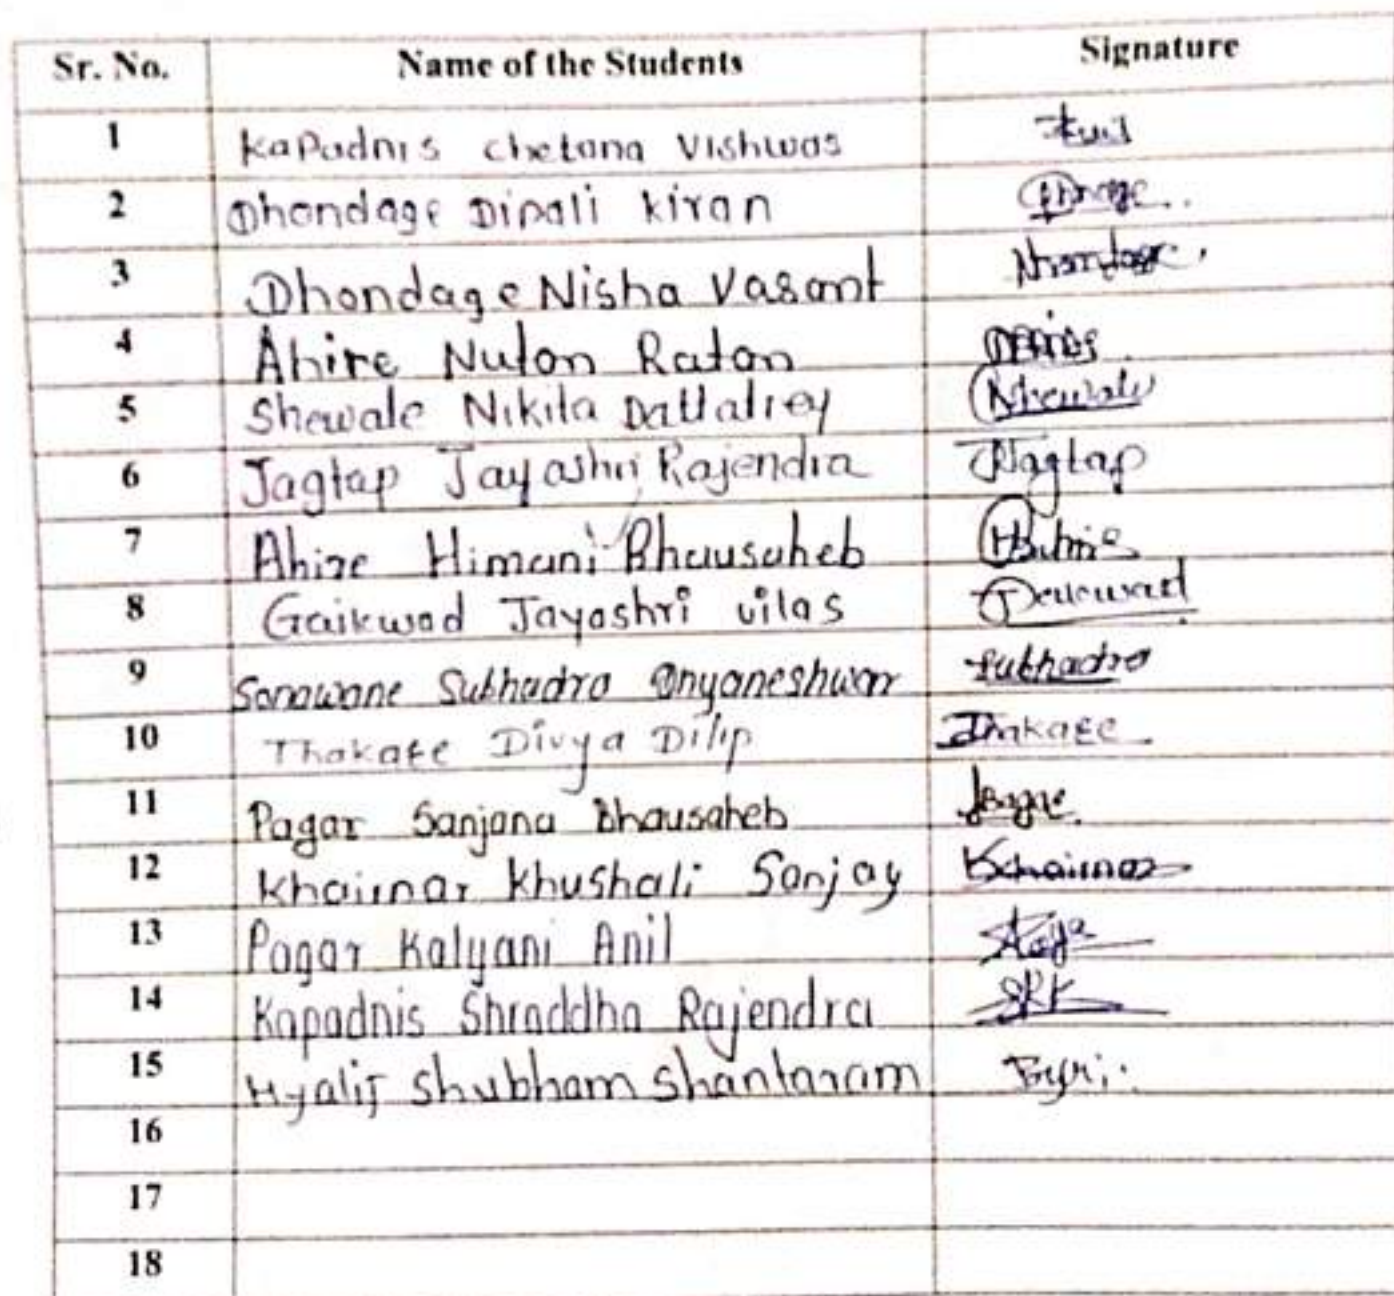 Sr. No. Name of the Students Signature
1 Kapadnis Chetana Vishwas
2 Dhondage Dipali Kiran
3 Dhondage Nisha Vasant
4 Ahire Nutan Ratan
5 Shewale Nikita Dattatrey Nshewale
6 Jagtap Jayashri Rajendra JRJagtap
7 Ahire Himani Bhausaheb
8 Gaikwad Jayashri vilas
9 Sonawane Subhadra Dnyaneshwar Subhadra
10 Thakare Divya Dilip Thakare
11 Pagar Sanjana Bhausaheb
12 Khairnar Khushali Sanjay Kkhairnar
13 Pagar Kalyani Anil
14 Kapadnis Shraddha Rajendra SRK
15 Hyalij Shubham Shantaram
16
17
18